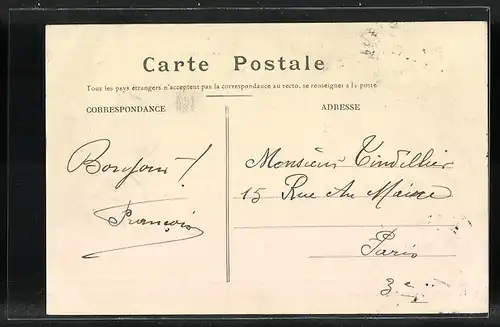 Carte Postale
Tous les pays étrangers n'acceptent pas la correspondance au recto, se renseigner à la poste
CORRESPONDANCE
ADRESSE
Bonjour !
François
Monsieur
15 Rue Au Maire
Paris
3e